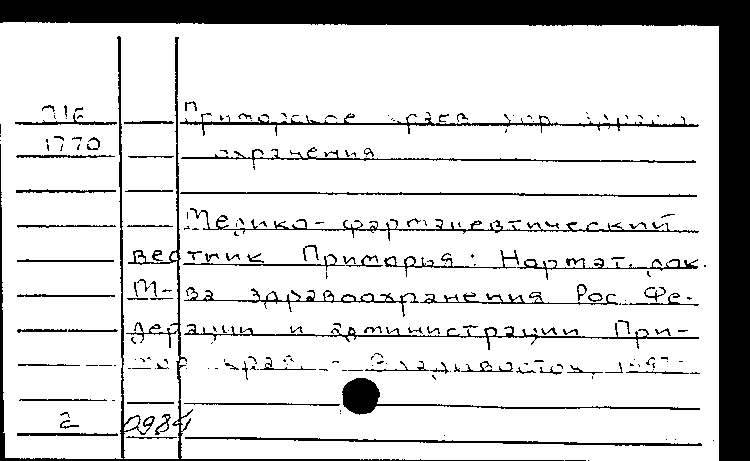 П16 Приморское краев. упр. здраво
1770 охранения
Медико-фармацевтический
вестник Приморья: Нормат. док.
М-ва здравоохранения Рос. Фе-
дерации и администрации При-
мор. края. - Владивосток, 1997-
2 0984